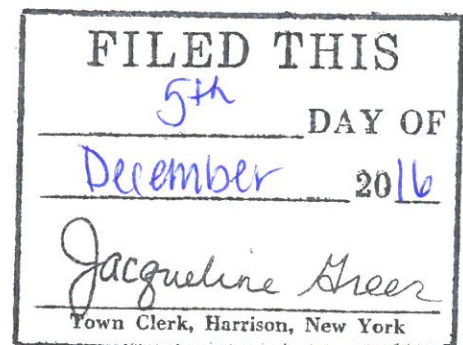 FILED THIS
5th
DAY OF
December 2016
Jacqueline Greer
Town Clerk, Harrison, New York